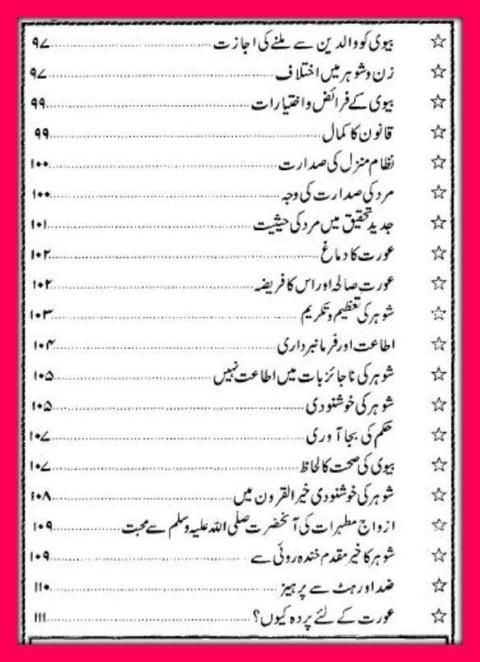 ☆ بیوی کو والدین سے ملنے کی اجازت ۹۷
☆ زن و شوہر میں اختلاف ۹۷
☆ بیوی کے فرائض و اختیارات ۹۹
☆ قانون کا کمال ۹۹
☆ نظام منزل کی صدارت ۱۰۰
☆ مرد کی صدارت کی وجہ ۱۰۰
☆ جدید تحقیق میں مرد کی حیثیت ۱۰۱
☆ عورت کا دماغ ۱۰۲
☆ عورت صالحہ اور اس کا فریضہ ۱۰۲
☆ شوہر کی تعظیم و تکریم ۱۰۳
☆ اطاعت اور فرمانبرداری ۱۰۴
☆ شوہر کی ناجائز بات میں اطاعت نہیں ۱۰۵
☆ شوہر کی خوشنودی ۱۰۵
☆ حکم کی بجا آوری ۱۰۷
☆ بیوی کی صحت کا لحاظ ۱۰۷
☆ شوہر کی خوشنودی خیر القرون میں ۱۰۸
☆ ازواج مطہرات کی آنحضرت صلی اللہ علیہ وسلم سے محبت ۱۰۹
☆ شوہر کا خیر مقدم خندہ روئی سے ۱۰۹
☆ ضد اور ہٹ سے پرہیز ۱۱۰
☆ عورت کے لئے پردہ کیوں؟ ۱۱۱